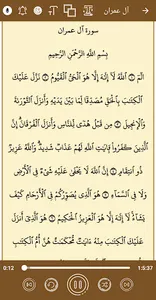 آل عمران
سورة آل عمران
بِسْمِ اللَّهِ الرَّحْمَٰنِ الرَّحِيمِ
الٓمٓ ۝ ٱللَّهُ لَآ إِلَٰهَ إِلَّا هُوَ ٱلْحَىُّ ٱلْقَيُّومُ ۝ نَزَّلَ عَلَيْكَ
ٱلْكِتَٰبَ بِٱلْحَقِّ مُصَدِّقًا لِّمَا بَيْنَ يَدَيْهِ وَأَنزَلَ ٱلتَّوْرَىٰةَ
وَٱلْإِنجِيلَ ۝ مِن قَبْلُ هُدًى لِّلنَّاسِ وَأَنزَلَ ٱلْفُرْقَانَ إِنَّ
ٱلَّذِينَ كَفَرُوا۟ بِـَٔايَٰتِ ٱللَّهِ لَهُمْ عَذَابٌ شَدِيدٌ وَٱللَّهُ عَزِيزٌ
ذُو ٱنتِقَامٍ ۝ إِنَّ ٱللَّهَ لَا يَخْفَىٰ عَلَيْهِ شَىْءٌ فِى ٱلْأَرْضِ
وَلَا فِى ٱلسَّمَآءِ ۝ هُوَ ٱلَّذِى يُصَوِّرُكُمْ فِى ٱلْأَرْحَامِ كَيْفَ
يَشَآءُ لَآ إِلَٰهَ إِلَّا هُوَ ٱلْعَزِيزُ ٱلْحَكِيمُ ۝ هُوَ ٱلَّذِىٓ أَنزَلَ
عَلَيْكَ ٱلْكِتَٰبَ مِنْهُ ءَايَٰتٌ مُّحْكَمَٰتٌ هُنَّ أُمُّ ٱلْكِتَٰبِ
0:12 1:5:37